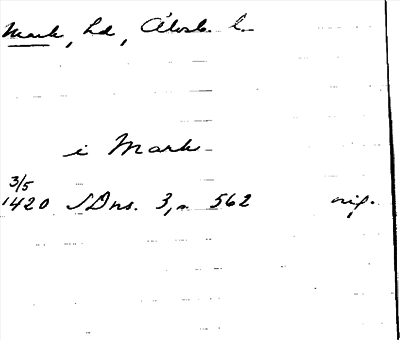 Mark, hd, Älvsb. l.
i Mark
3/5
1420 SDns. 3, s. 562 orig.